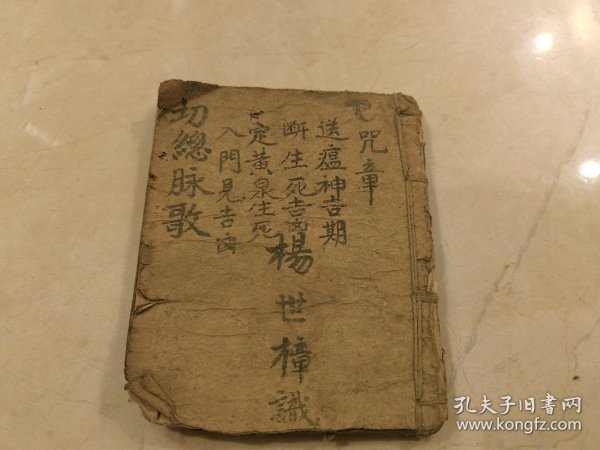 咒章
送瘟神吉期
断生死吉凶
定黄泉生死
入門見吉凶
切總脉歌
楊世樟識
孔夫子旧书网
www.kongfz.com